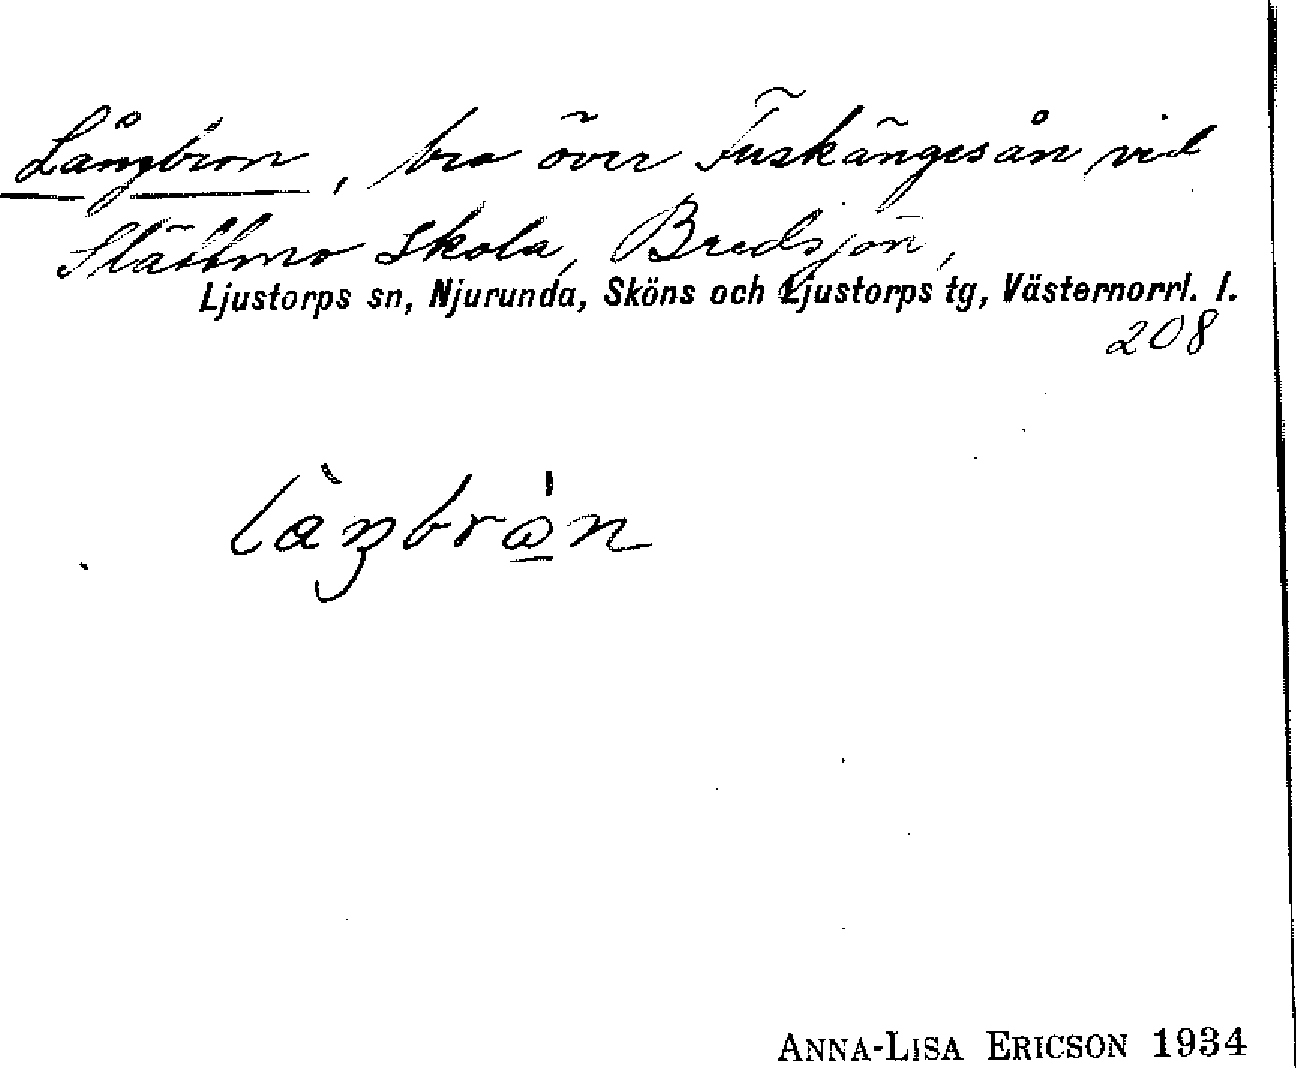 Långbron, bro över Fuskängesån vid
Slättmo skola, Bredsjön,
Ljustorps sn, Njurunda, Sköns och Ljustorps tg, Västernorrl. l.
208
ANNA-LISA ERICSON 1934